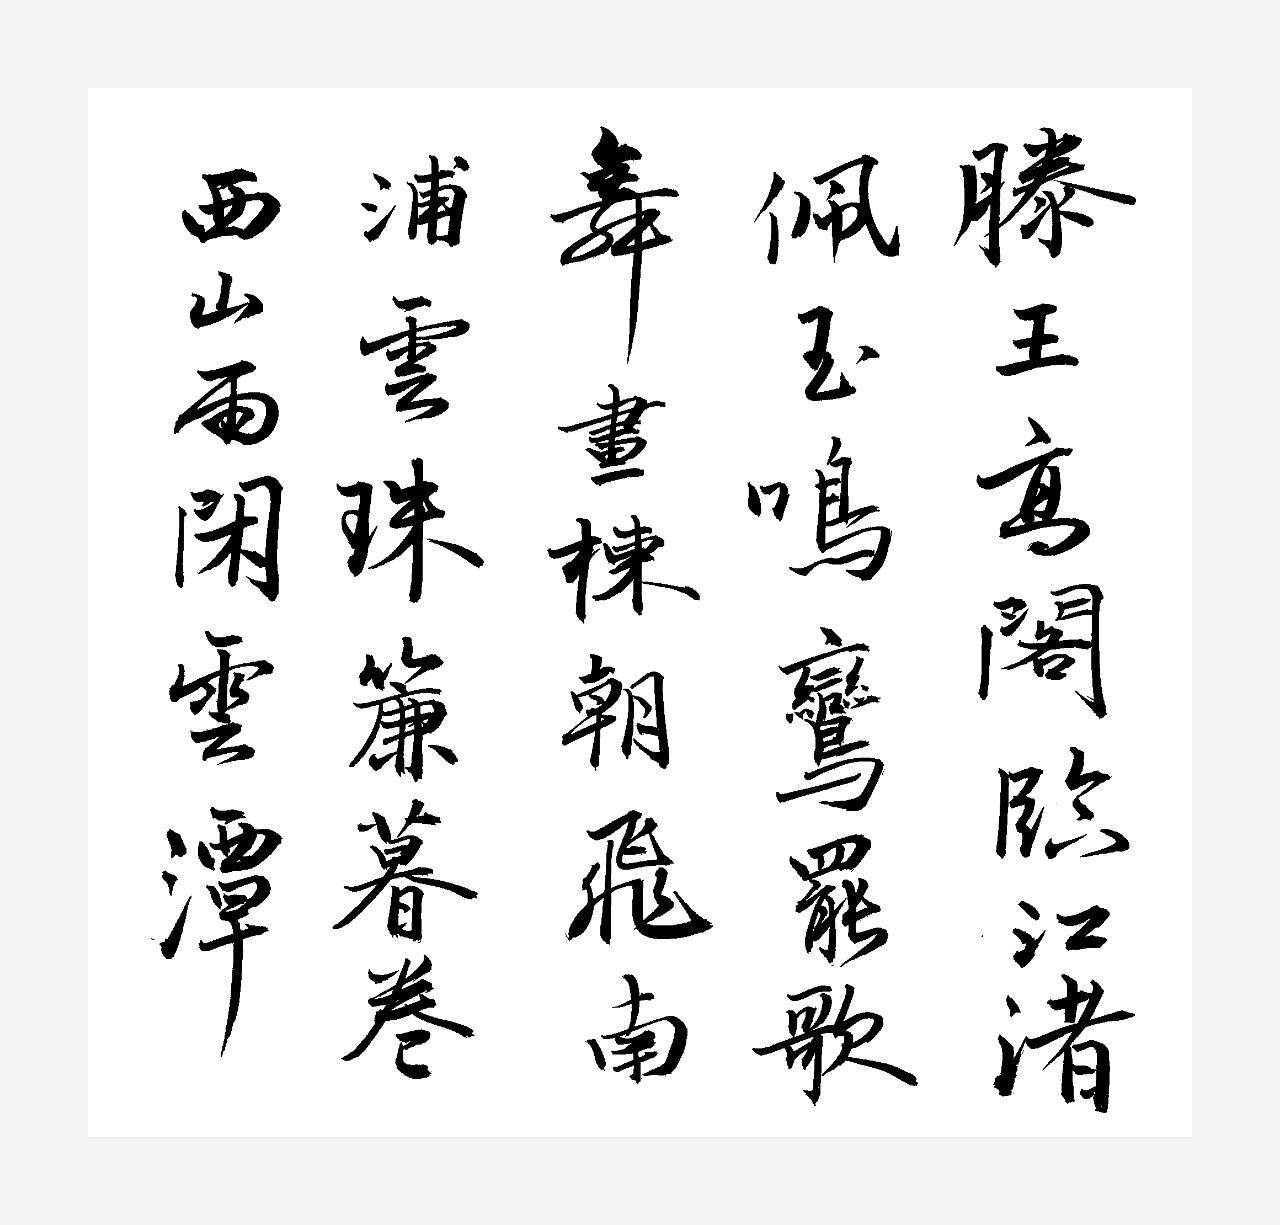 滕王高閣臨江渚
佩玉鳴鸞罷歌
舞畫棟朝飛南
浦雲珠簾暮卷
西山雨閑雲潭